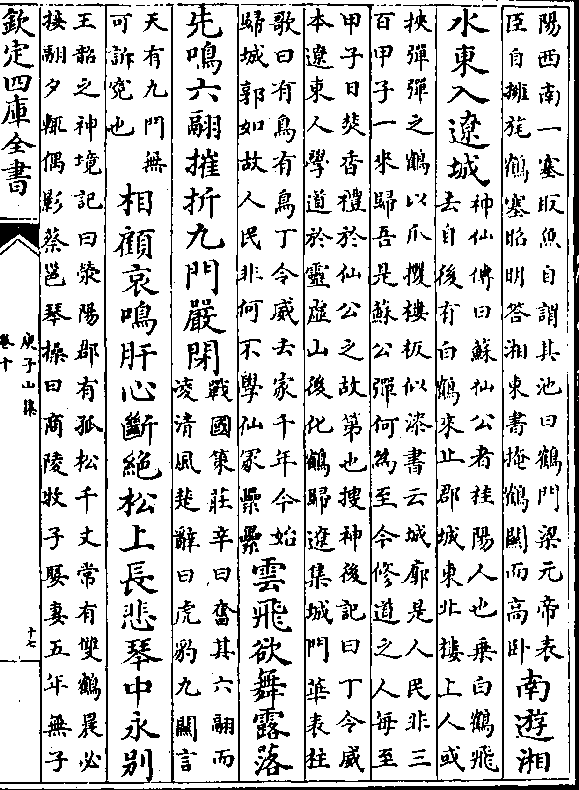 陽西南一塞取魚自謂其池曰鶴門梁元帝表
臣自擁旄鶴塞昭明答湘東書掩鶴關而高卧
南遊湘
水東入遼城
神仙傳曰蘇仙公者桂陽人也乗白鶴飛
去自後有白鶴來止郡城東北樓上人或
挾彈彈之鶴以爪攫樓板似漆書云城廓是人民非三
百甲子一來歸吾是蘇公彈何為至今修道之人每至
甲子日焚香禮於仙公之故第也搜神後記曰丁令威
本遼東人學道於靈虛山後化鶴歸遼集城門華表柱
歌曰有鳥有鳥丁令威去家千年今始
歸城郭如故人民非何不學仙冢纍纍
雲飛欲舞露落
先鳴六翮摧折九門嚴閉
戰國策莊辛曰奮其六翮而
凌清風楚辭曰虎豹九關言
天有九門無
可訴寃也
相顧哀鳴肝心斷絶松上長悲琴中永別
王韶之神境記曰滎陽郡有孤松千丈常有雙鶴晨必
接翮夕輒偶影蔡邕琴操曰商陵牧子娶妻五年無子
欽定四庫全書
庾子山集
卷十
十七